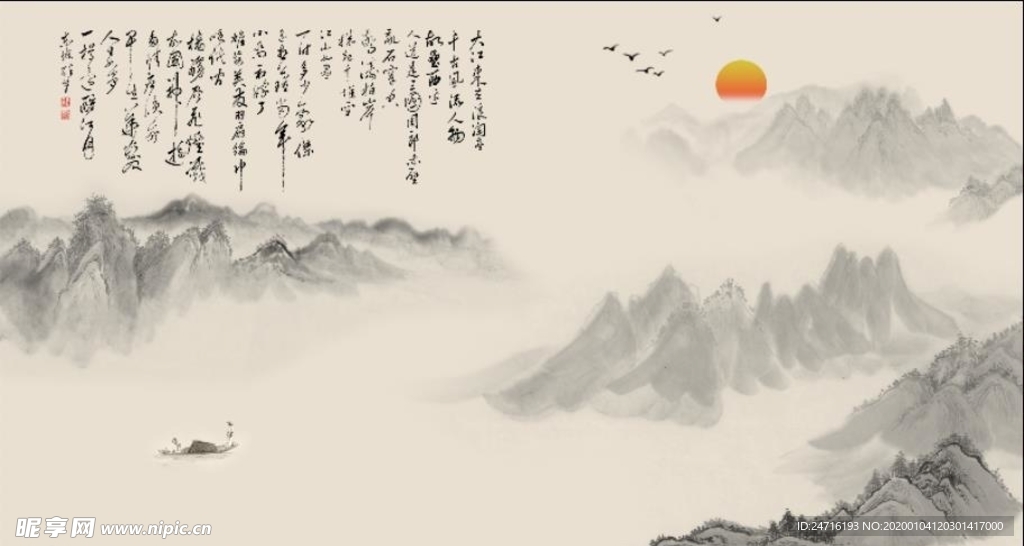 大江東去浪淘盡
千古風流人物
故壘西邊
人道是三國周郎赤壁
亂石穿空
驚濤拍岸
捲起千堆雪
江山如畫
一時多少豪傑
遙想公瑾當年
小喬初嫁了
雄姿英發羽扇綸巾
檣櫓灰飛煙滅
故國神遊
早生華髮
人生如夢
一樽還酹江月
昵享网 www.nipic.cn
ID:24716193 NO:20200104120301417000